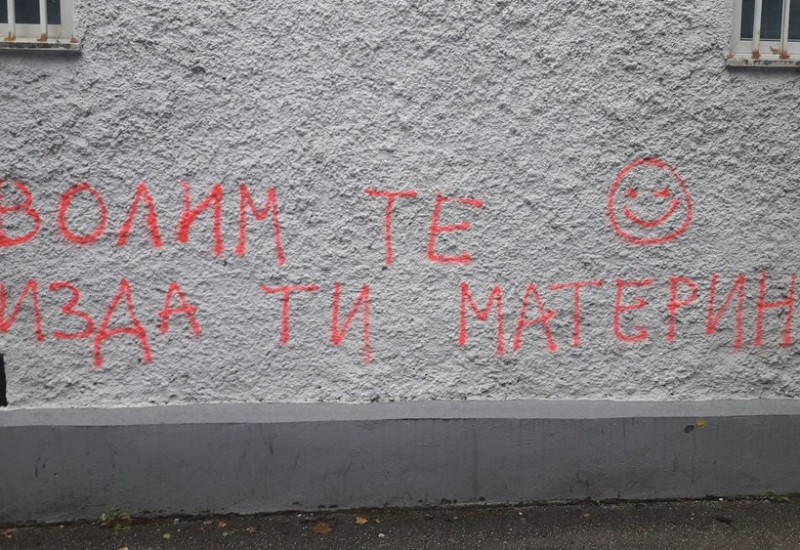 ВОЛИМ ТЕ
ИЗДА ТИ МАТЕРИН